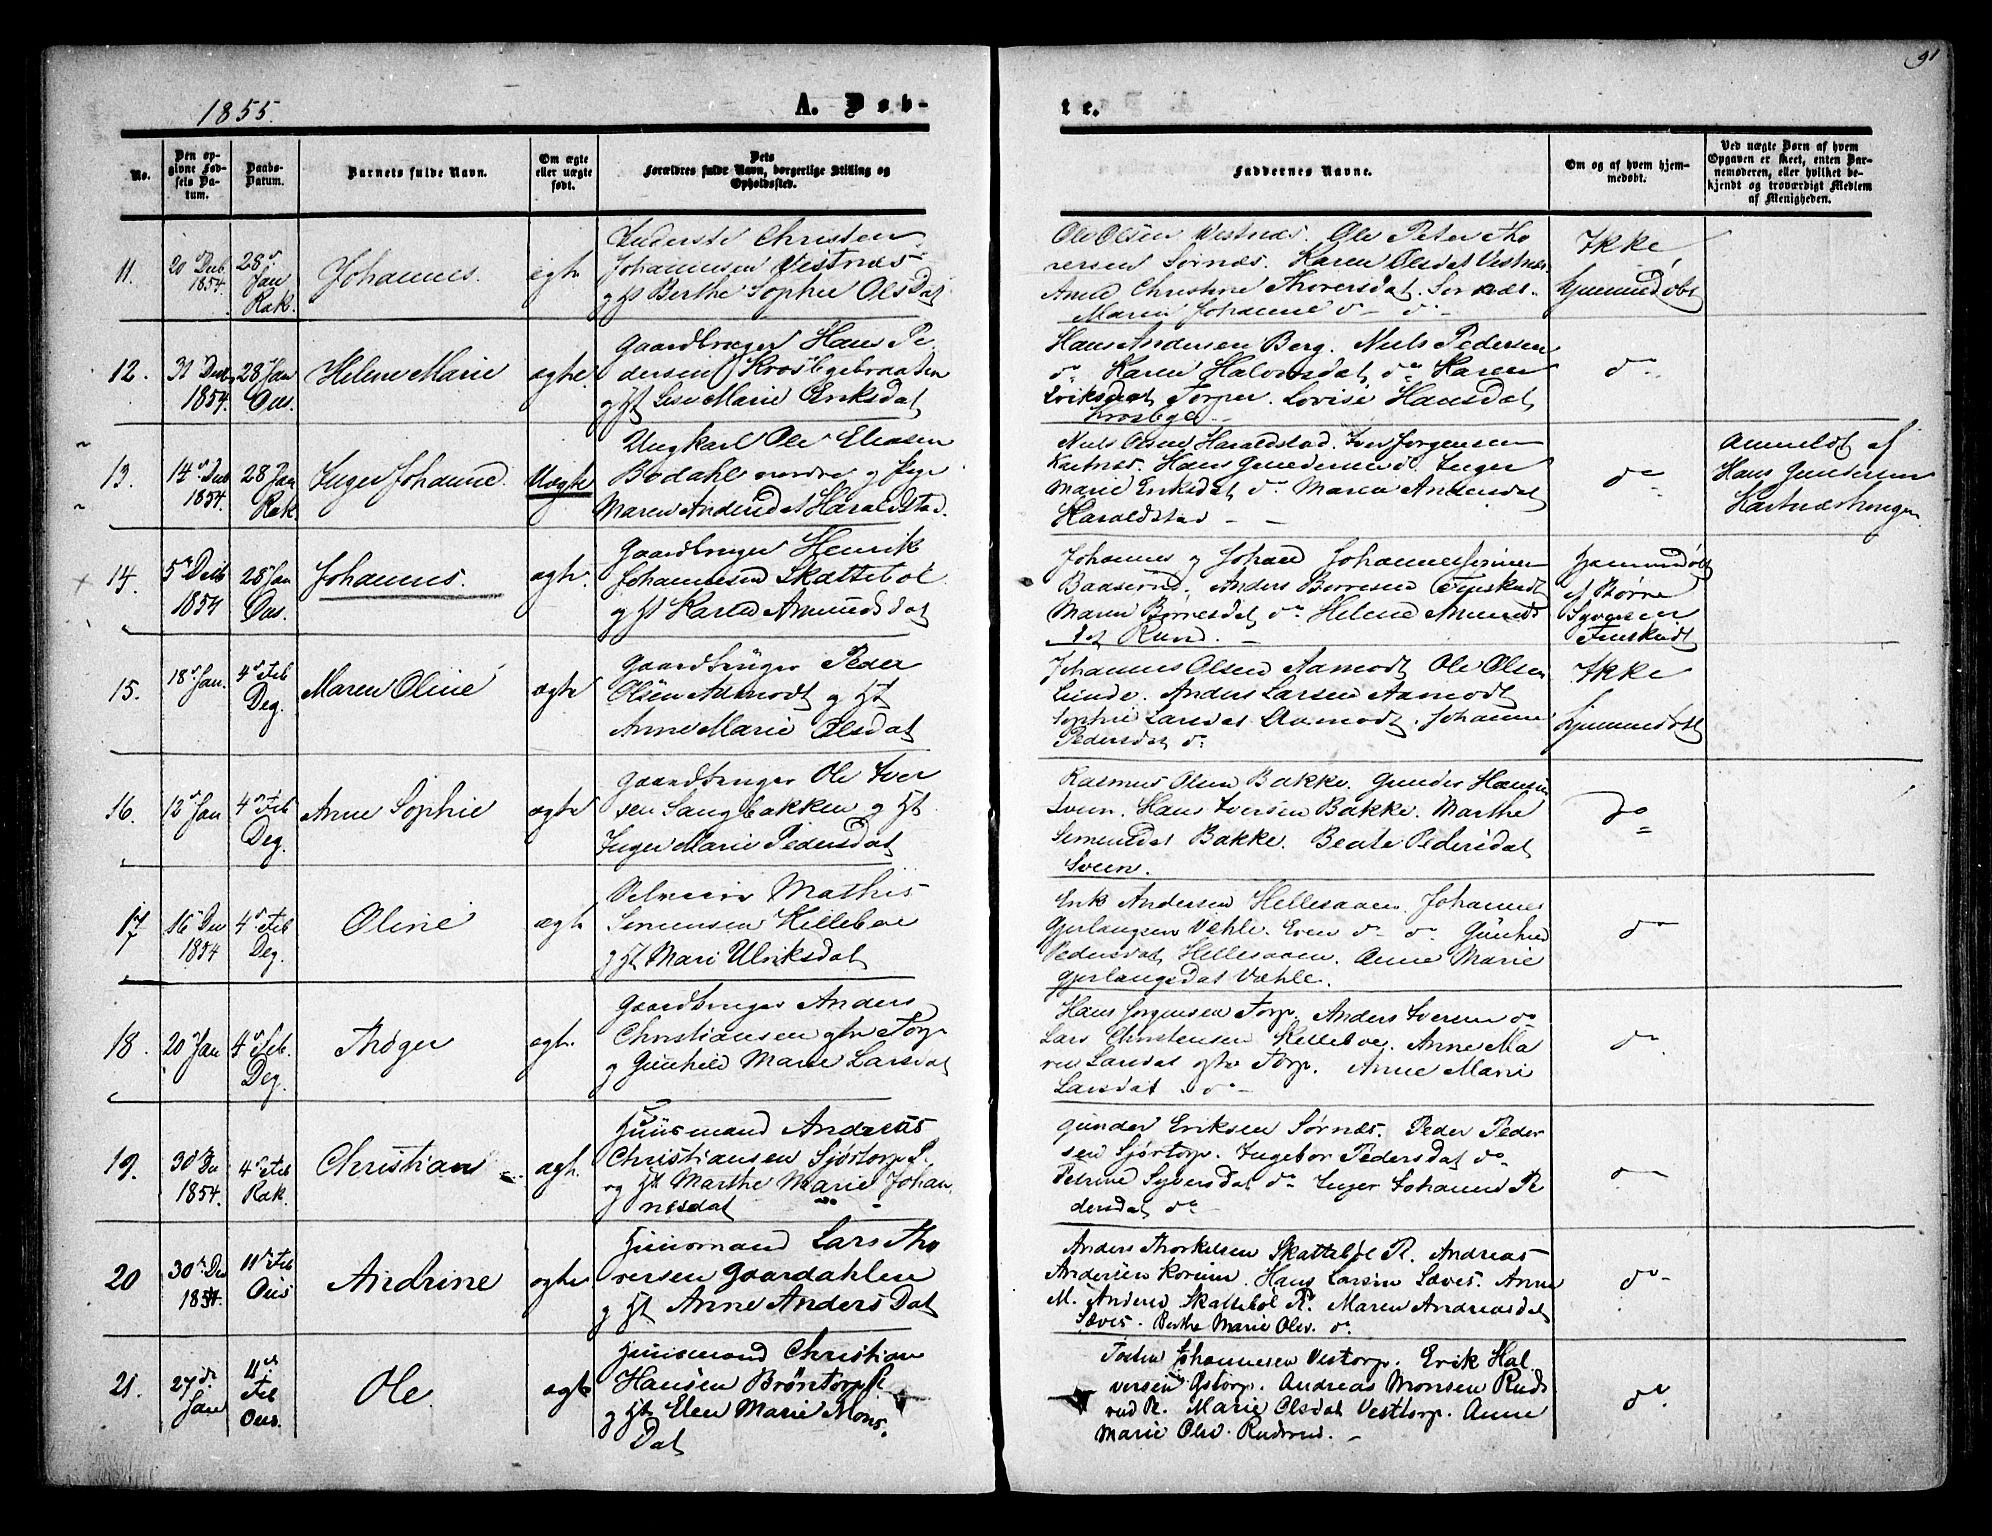 1855.
A. Døb-
te.
91
No.
Den op-
givne Fød-
sels Da-
tum.
Daabs-
Datum.
Barnets fulde Navn.
Om ægte
eller uægte
født.
Dets
Forældres fulde Navn, borgerlige Stilling og
Opholdssted.
Faddernes Navne.
Om og af hvem hjem-
medøbt.
Ved uægte Børn af hvem
Opgaven er skeet, enten Bar-
nemoderen, eller hvilket be-
kjendt og troværdigt Medlem
af Menigheden.
11.
20 Decb
1854.
28
Jan
Rak.
Johannes.
ægte
Inderste Christen
Johannesen Vestnæs
og Ht Berthe Sophie Olsdat
Ole Olsen Vestnæs. Ole Peter Tho
rersen Sørnæs. Karen Olsdat Vestnæs
Anne Christine Thoversdat. Sørnæs.
Maren Johanne do
Ikke
hjemmedøbt
12.
31 Decb
1854.
28 Jan
Ous.
Helene Marie
ægte.
Gaardbruger Hans Pe
dersen Krosbygebraaten
og Ht Lise Marie Eriksdat
Hans Andersen Berg. Niels Pedersen
do Karen Halvorsdat do Karen
Eriksdat Torper. Lovise Hansdat
Krosbye
do
13.
14 Decb
1854.
28 Jan
Rak.
Inger Johanne.
Uægte
Ungkarl Ole Eliasen
Bodahl nordre og Pige
Maren Andersdat Haraldstad.
Niels Olsen Haraldstad. Iver Jørgensen
Kartnæs. Hans Gundersen do Inger
Marie Eriksdat do Maren Andersdat
Haraldstad
do
Anmeldt af
Hans Gundersen
14.
5 Decb
1854
28 Jan
Ous.
Johannes.
ægte.
Gaardbruger Henrik
Johannesen Skattebøl
og Ht Karen Amundsdat
Johannes og Johan Johannes
Baaserud. Anders Børresen Finskudt
Maren Børresdat do Helene Amunds
dat Rund.
Hjemmedøbt
af Børre
Syversen
Finskudt
15.
18 Jan.
4 Feb
Deg.
Maren Oline
ægte
Gaardbruger Peder
Olsen Aamodt og Ht
Anne Marie Olsdat
Johannes Olsen Aamodt Ole Olsen
Linde. Anders Larsen Aamodt
Sophie Larsdat Aamodt. Johanne
Pedersdat do
Ikke
hjemmedøbt
16.
12 Jan
4 Feb
Deg.
Anne Sophie
ægte
Gaardbruger Ole Iver
sen Sangbakken og Ht
Inger Marie Pedersdat
Rasmus Olsen Bakke. Gunder Hansen
Sveen. Hans Iversen Bakke. Marthe
Simensdat Bakke. Beate Pedersdat
Sveen.
do
17
16 Dec
1854
4 Feb
Deg.
Oline
ægte
Mathis
Simensen Helleboe
og Ht Mari Ulriksdat
Erik Andersen Hellesaaen. Johannes
Gjerlaugsen Væhle. Even do do. Gunhild
Pedersdat Hellesaaen. Anne Marie
Gjerlaugsdat Væhle.
do
18.
20 Jan
4 Feb.
Deg.
Thøger
ægte.
Gaardbruger Anders
Christiansen østre Torp
og Gunhild Marie Larsdat
Hans Jørgensen Torp. Anders Iversen do
Lars Christensen Helleboe. Anne Ma
rie Larsdat østre Torp. Anne Marie
Larsdat do
do
19.
30 Dec
1854.
4 Feb
Rak.
Christian
ægte.
Huusmand Andreas
Christiansen Sjørtorp P.
og Ht Marthe Marie Johan
nesdat
Gunder Eriksen Sørnæs. Peder Peder
sen Sjørtorp. Ingebor Pedersdat do
Petrine Syversdat do Inger Johanne Pe
dersdat do
do
20
30 Dec
1854.
11 Feb
Ous
Andrine
ægte
Huusmand Lars Tho
versen Gaardahlen
og Ht Anne Anders Dat
Anders Thorkelsen Skattebøl P. Andreas
Andersen. Hans Larsen Sæves. Anne
M. Andersd Skattebøl P. Maren Andreasdat
Sæves. Berthe Marie Olsd. do
do
21.
27
Jan
11
Feb
Ous.
Ole
ægte
Huusmand Christian
Hansen Brøntorp P.
og Ht Elen Marie Mons
Dat
Johannesen Vestorp. Erik Hal
versen Østorp. Andreas Monsen Ruds
rud P. Marie Olsdat Vesttorp. Anne
Marie Olsd. Rudsrud.
do